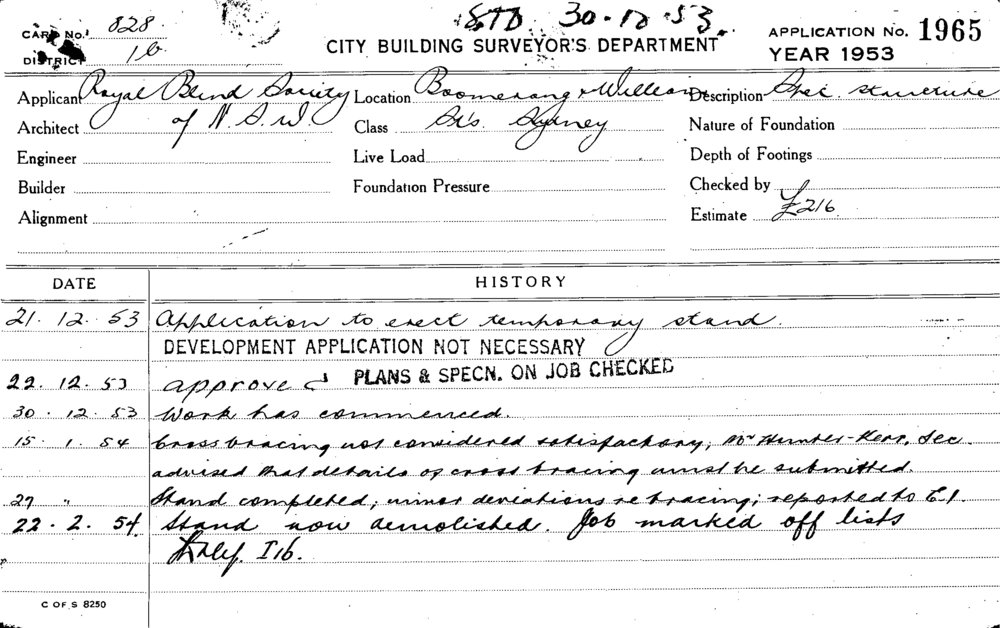 STD. 30.12.53.
CARD No. 828
DISTRICT 16
CITY BUILDING SURVEYOR'S DEPARTMENT
APPLICATION No. 1965
YEAR 1953
Applicant Royal Blind Society Location Boomerang & William Description Spec. structure
Architect of N.S.W. Class Sts. Sydney Nature of Foundation
Engineer Live Load Depth of Footings
Builder Foundation Pressure Checked by
Alignment Estimate £216
DATE HISTORY
21. 12. 53 Application to erect temporary stand.
DEVELOPMENT APPLICATION NOT NECESSARY
22. 12. 53 approved PLANS & SPECN. ON JOB CHECKED
30. 12. 53 Work has commenced.
15. 1. 54 Cross bracing not considered satisfactory; Mr Hunter-Kerr, Sec.
advised that details of cross bracing must be submitted.
29 " Stand completed; minor deviations re bracing; reported to C.I.
22. 2. 54. Stand now demolished. Job marked off lists
I16.
C OF S 8250